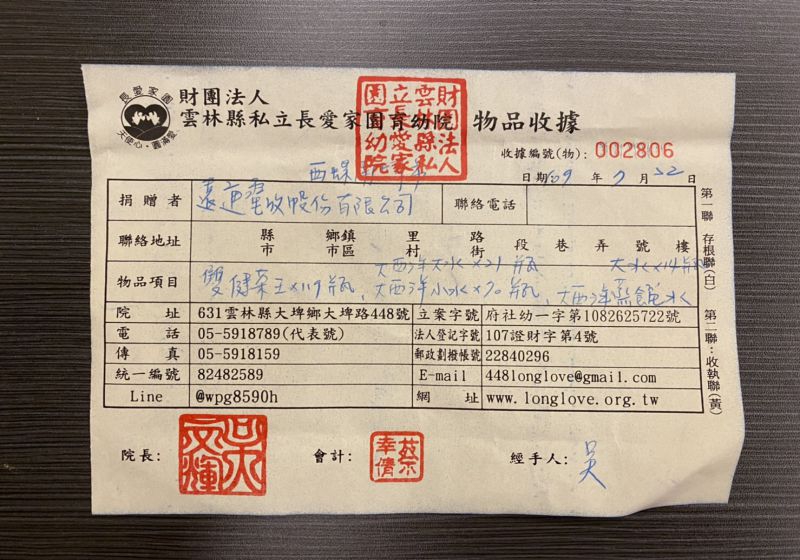 長愛家園
天使心・圓滿愛
財團法人
雲林縣私立長愛家園育幼院 物品收據
財團法人雲林縣私立長愛家園育幼院
收據編號(物): 002806
日期 109 年 7 月 22 日
西螺
捐贈者 遠東電收股份有限公司 聯絡電話
聯絡地址 縣市 鄉鎮市區 里村 路街 段 巷 弄 號 樓
大西洋大水×21瓶 大水×14瓶
物品項目 雙健茶王×119瓶, 大西洋小水×70瓶, 大西洋蒸餾水
院址 631雲林縣大埤鄉大埤路448號 立案字號 府社幼一字第1082625722號
電話 05-5918789(代表號) 法人登記字號 107證財字第4號
傳真 05-5918159 郵政劃撥帳號 22840296
統一編號 82482589 E-mail 448longlove@gmail.com
Line @wpg8590h 網址 www.longlove.org.tw
第一聯 存根聯(白) 第二聯:收執聯(黃)
院長: 會計: 蔡幸倩 經手人: 吳